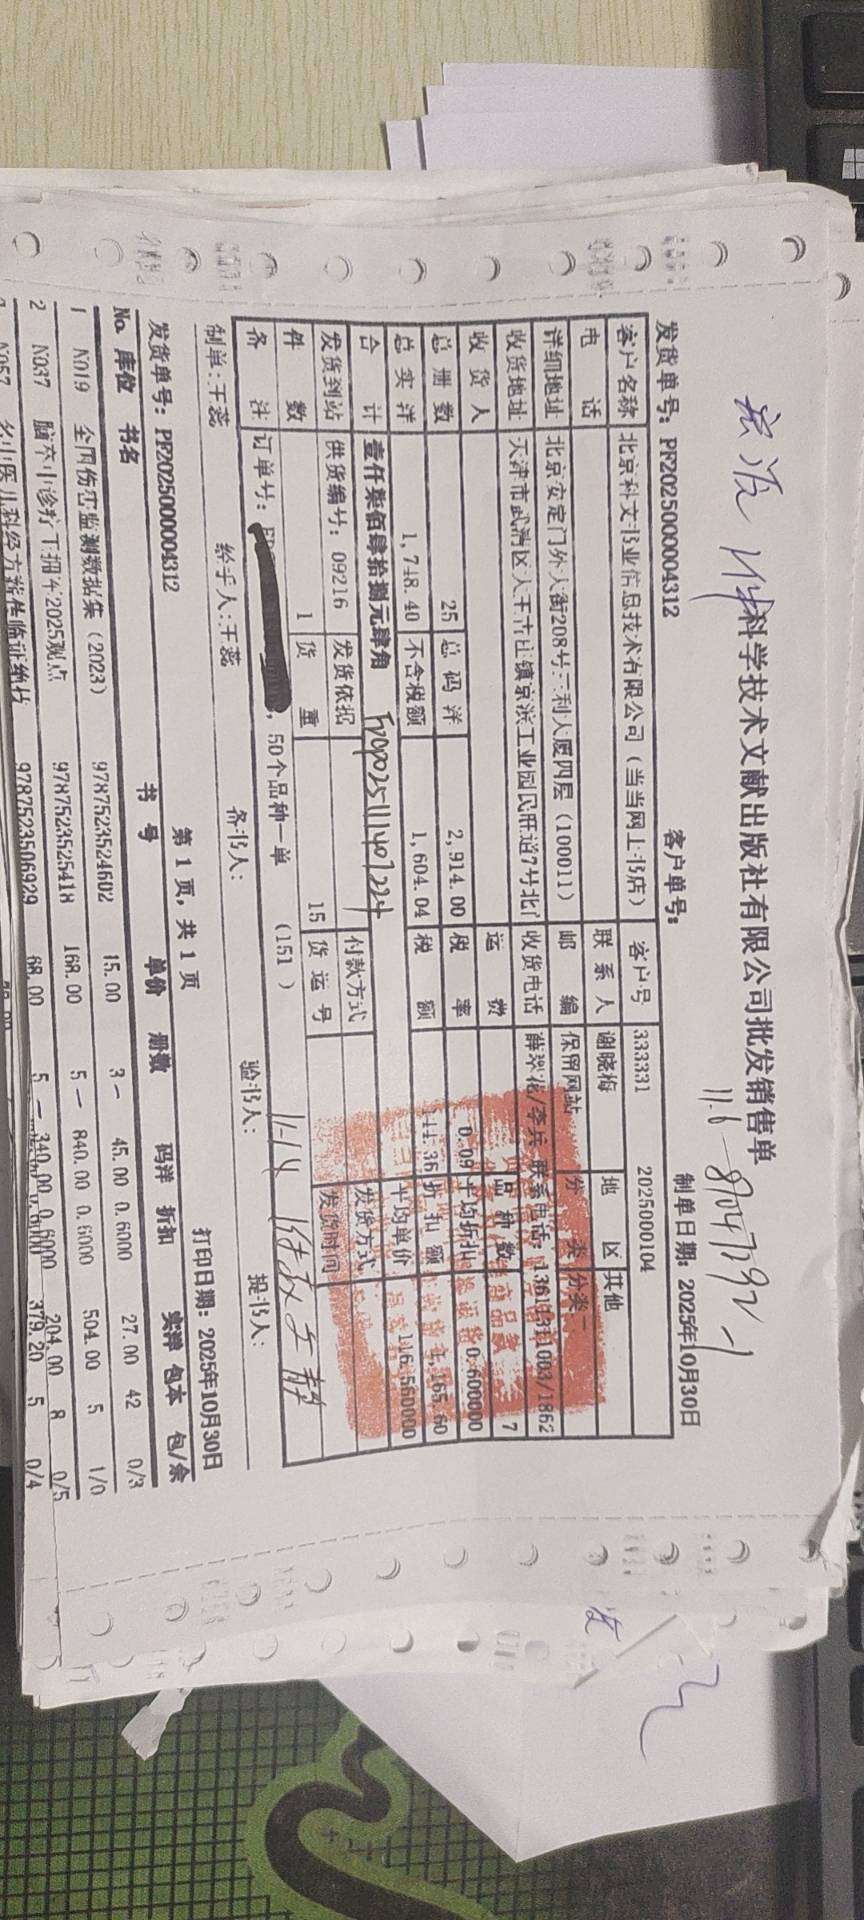 科学技术文献出版社有限公司批发销售单
11.6
发货单号: PF2025000004312 客户单号: 制单日期: 2025年10月30日
客户名称 北京科文书业信息技术有限公司（当当网上书店） 客户号 333331 2025000104
电 话 联系人 谢晓梅 地 区 其他
详细地址 北京安定门外大街208号三利大厦四层（100011） 邮 编 保留网站 分 类 分类二
收货地址 天津市武清区大王古庄镇京滨工业园民旺道7号北门 收货电话 薛翠花/李兵 联系电话: 13611311003/1862
收 货 人 运 费 品 种 数 7
总 册 数 25 总 码 洋 2,914.00 税 率 0.09 平均折扣 0.600000
总 实 洋 1,748.40 不含税额 1,604.04 税 额 144.36 折 扣 额 1,165.60
合 计 壹仟柒佰肆拾捌元肆角 平均单价 116.560000
发货到站 供货编号: 09216 发货依据 付款方式 发货方式
件 数 1 货 重 15 货 运 号 发货时间
备 注 订单号: , 50个品种一单 （151 ） 11-14
制单:王蕊 经手人:王蕊 备书人: 验书人: 提书人:
第 1 页, 共 1 页 打印日期: 2025年10月30日
发货单号: PF2025000004312
No. 库位 书名 书 号 单价 册数 码洋 折扣 实洋 包本 包/余
1 N019 全国伤害监测数据集（2023） 9787523524602 15.00 3 45.00 0.6000 27.00 42 0/3
2 N037 脑卒中诊疗 2025观点 9787523525418 168.00 5 840.00 0.6000 504.00 5 1/0
N057 名中医儿科经方 临证 9787523506929 68.00 5 340.00 0.6000 204.00 8 0/5
0.6000 379.20 5 0/4